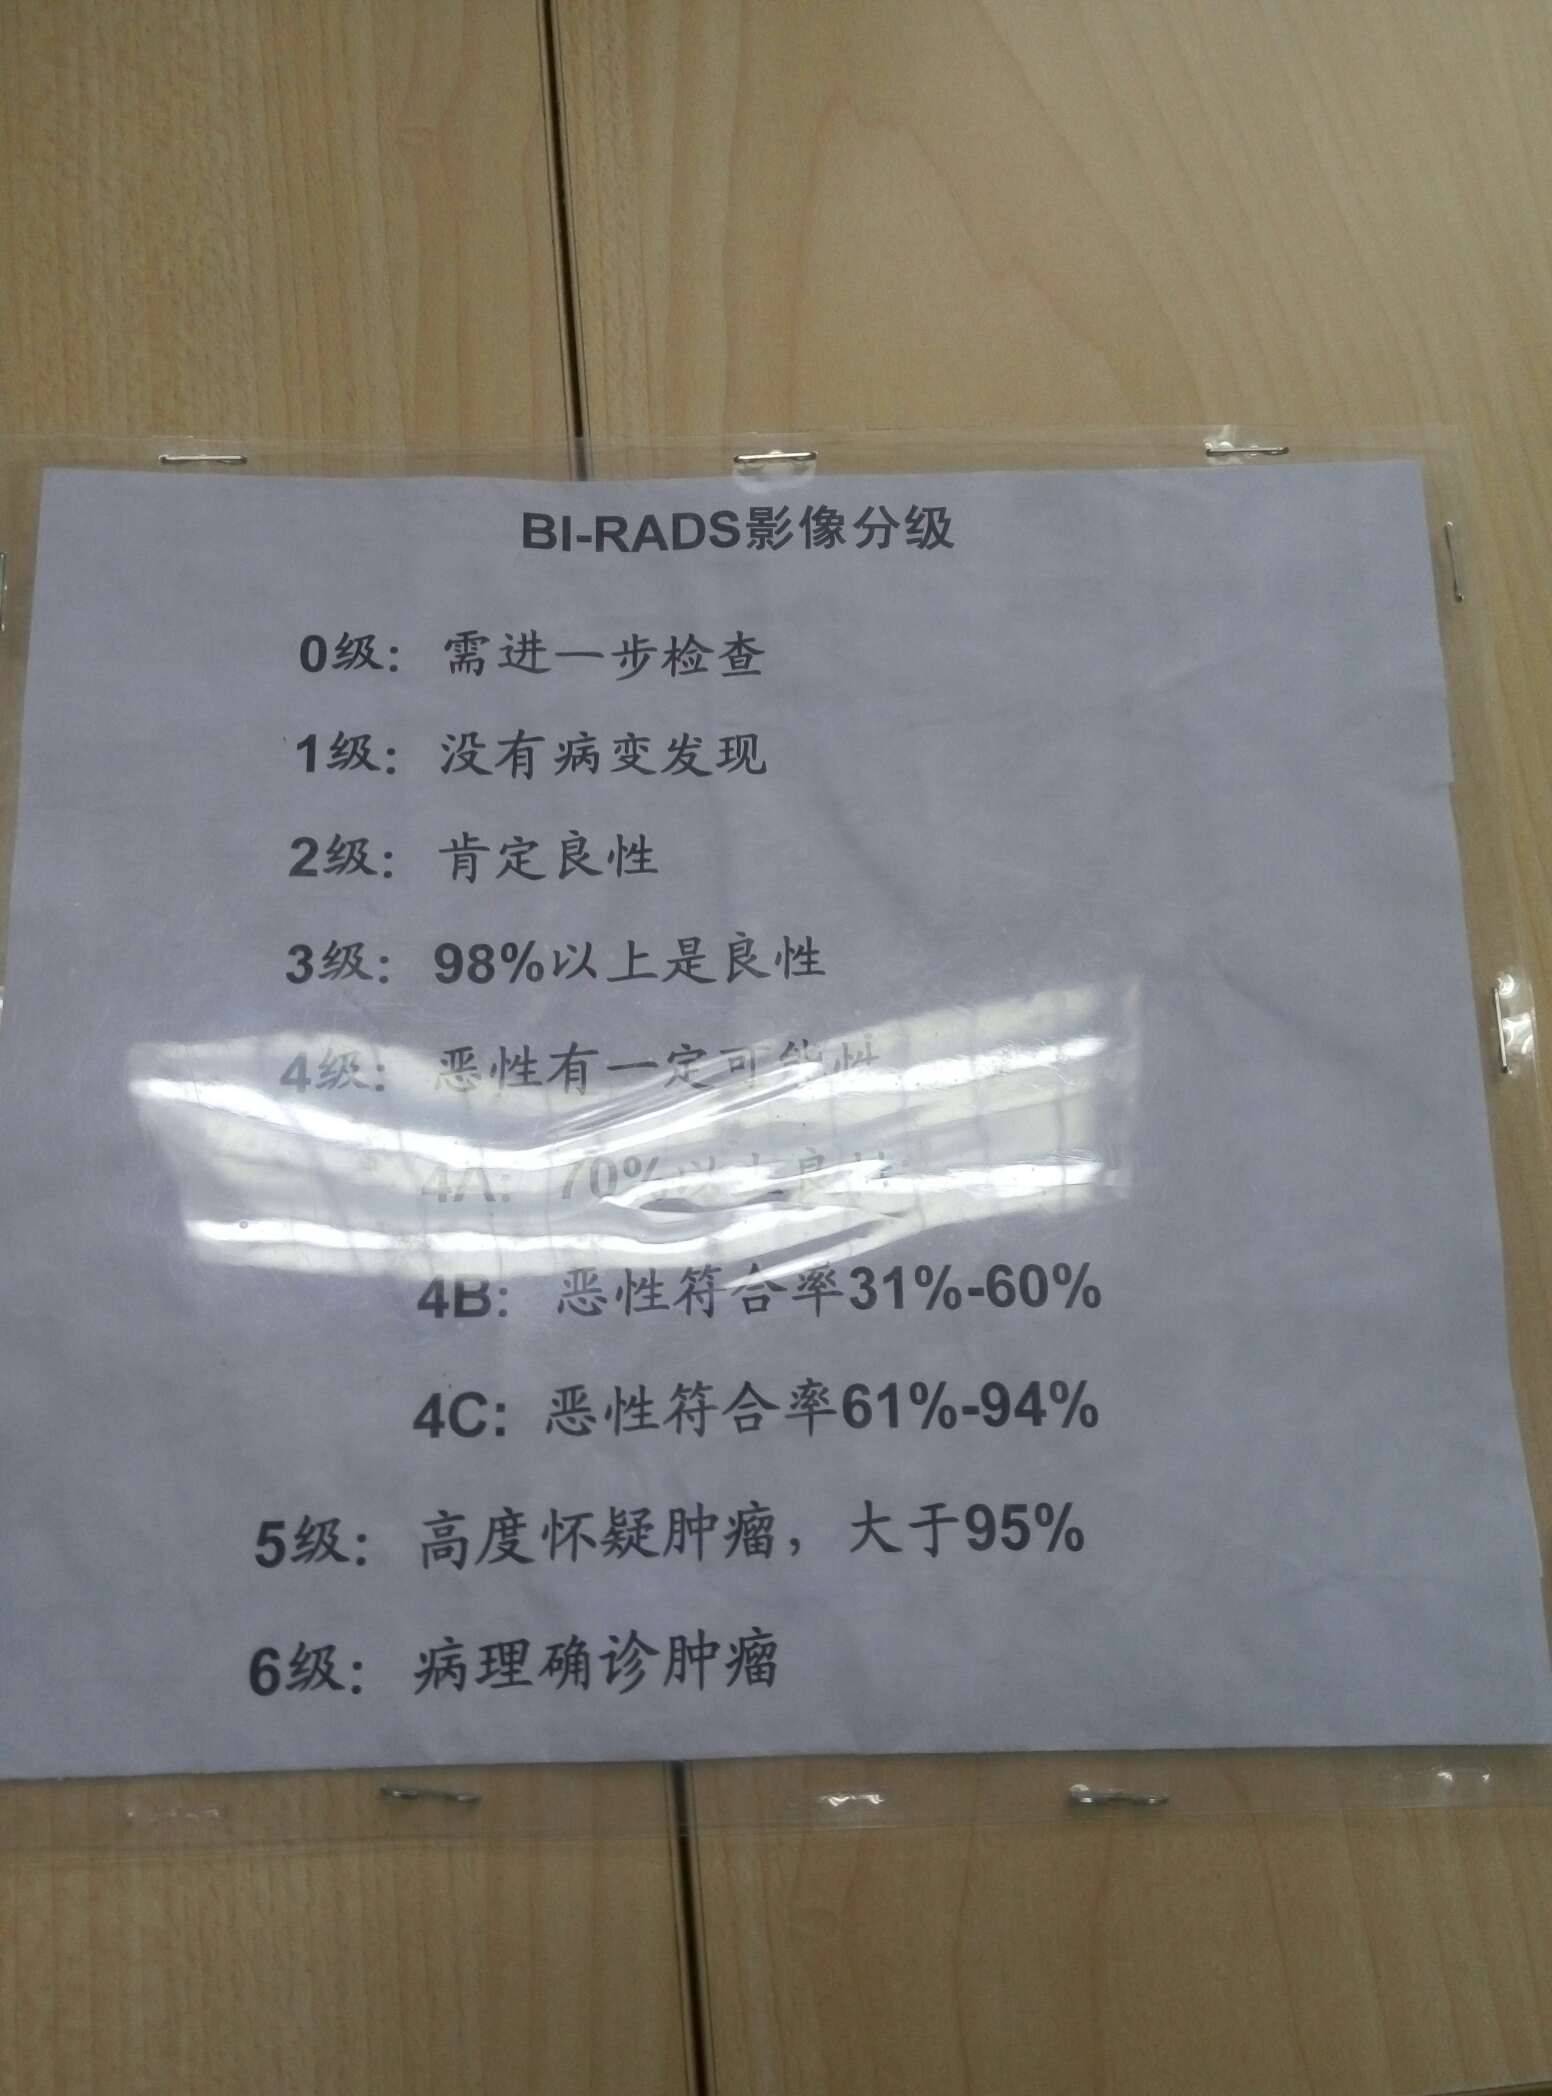 BI-RADS影像分级
0级：需进一步检查
1级：没有病变发现
2级：肯定良性
3级：98%以上是良性
4级：恶性有一定可能性
4A：70%以上良性
4B：恶性符合率31%-60%
4C：恶性符合率61%-94%
5级：高度怀疑肿瘤，大于95%
6级：病理确诊肿瘤